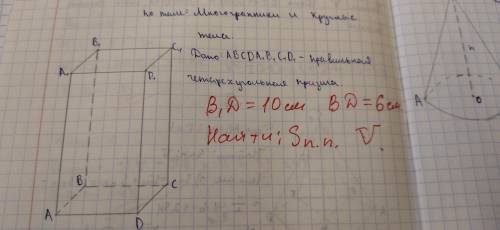 по теме: Многогранники и круглые
тела.
Дано: ABCDA₁B₁C₁D₁ - правильная
четырехугольная призма.
B₁D = 10 см BD = 6 см
Найти: Sп.п. V.
B₁ C₁
A₁ D₁
B C
A D
A O